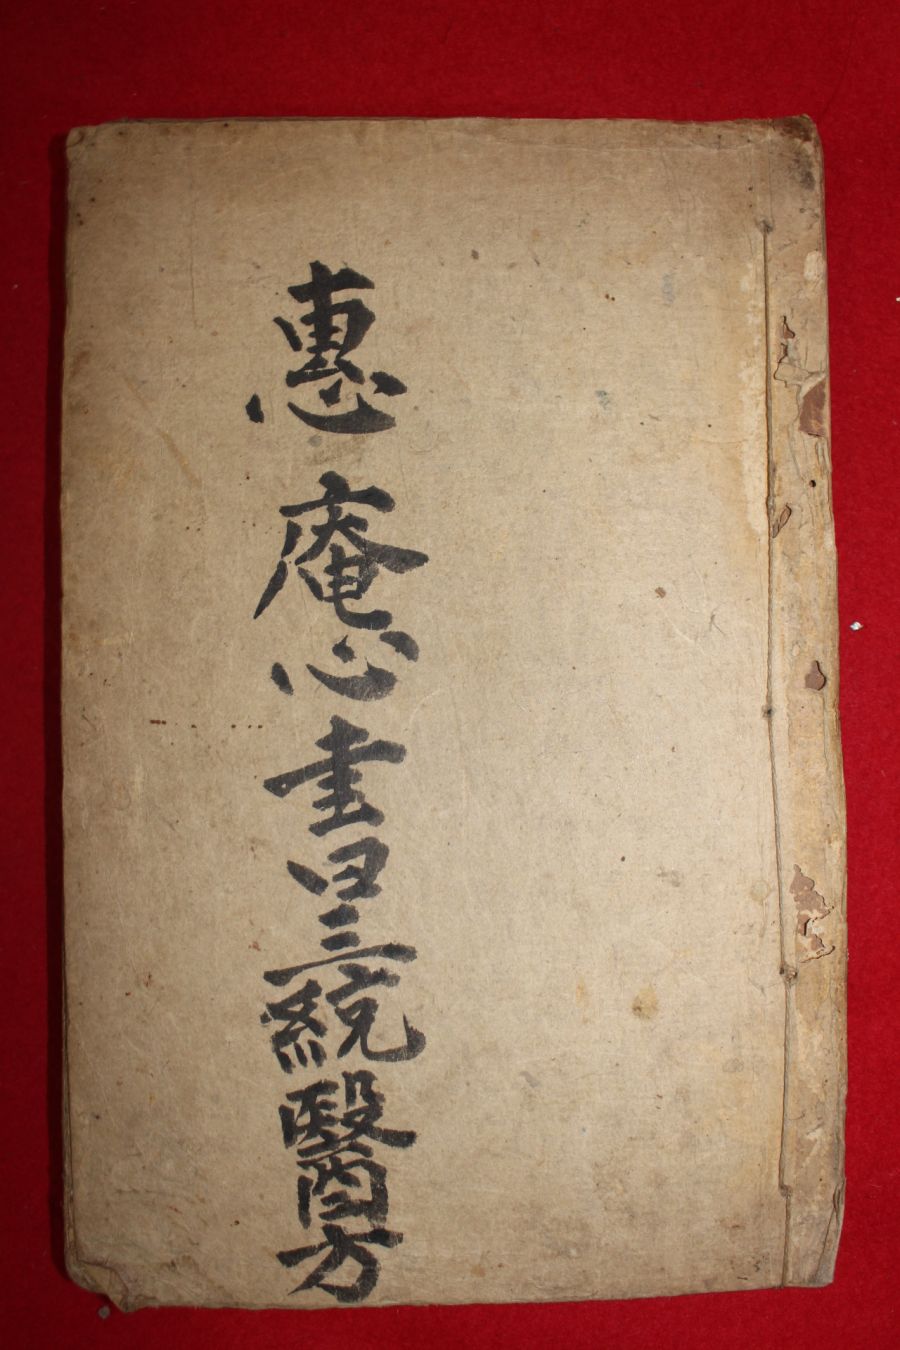 惠庵心書曰三統醫方